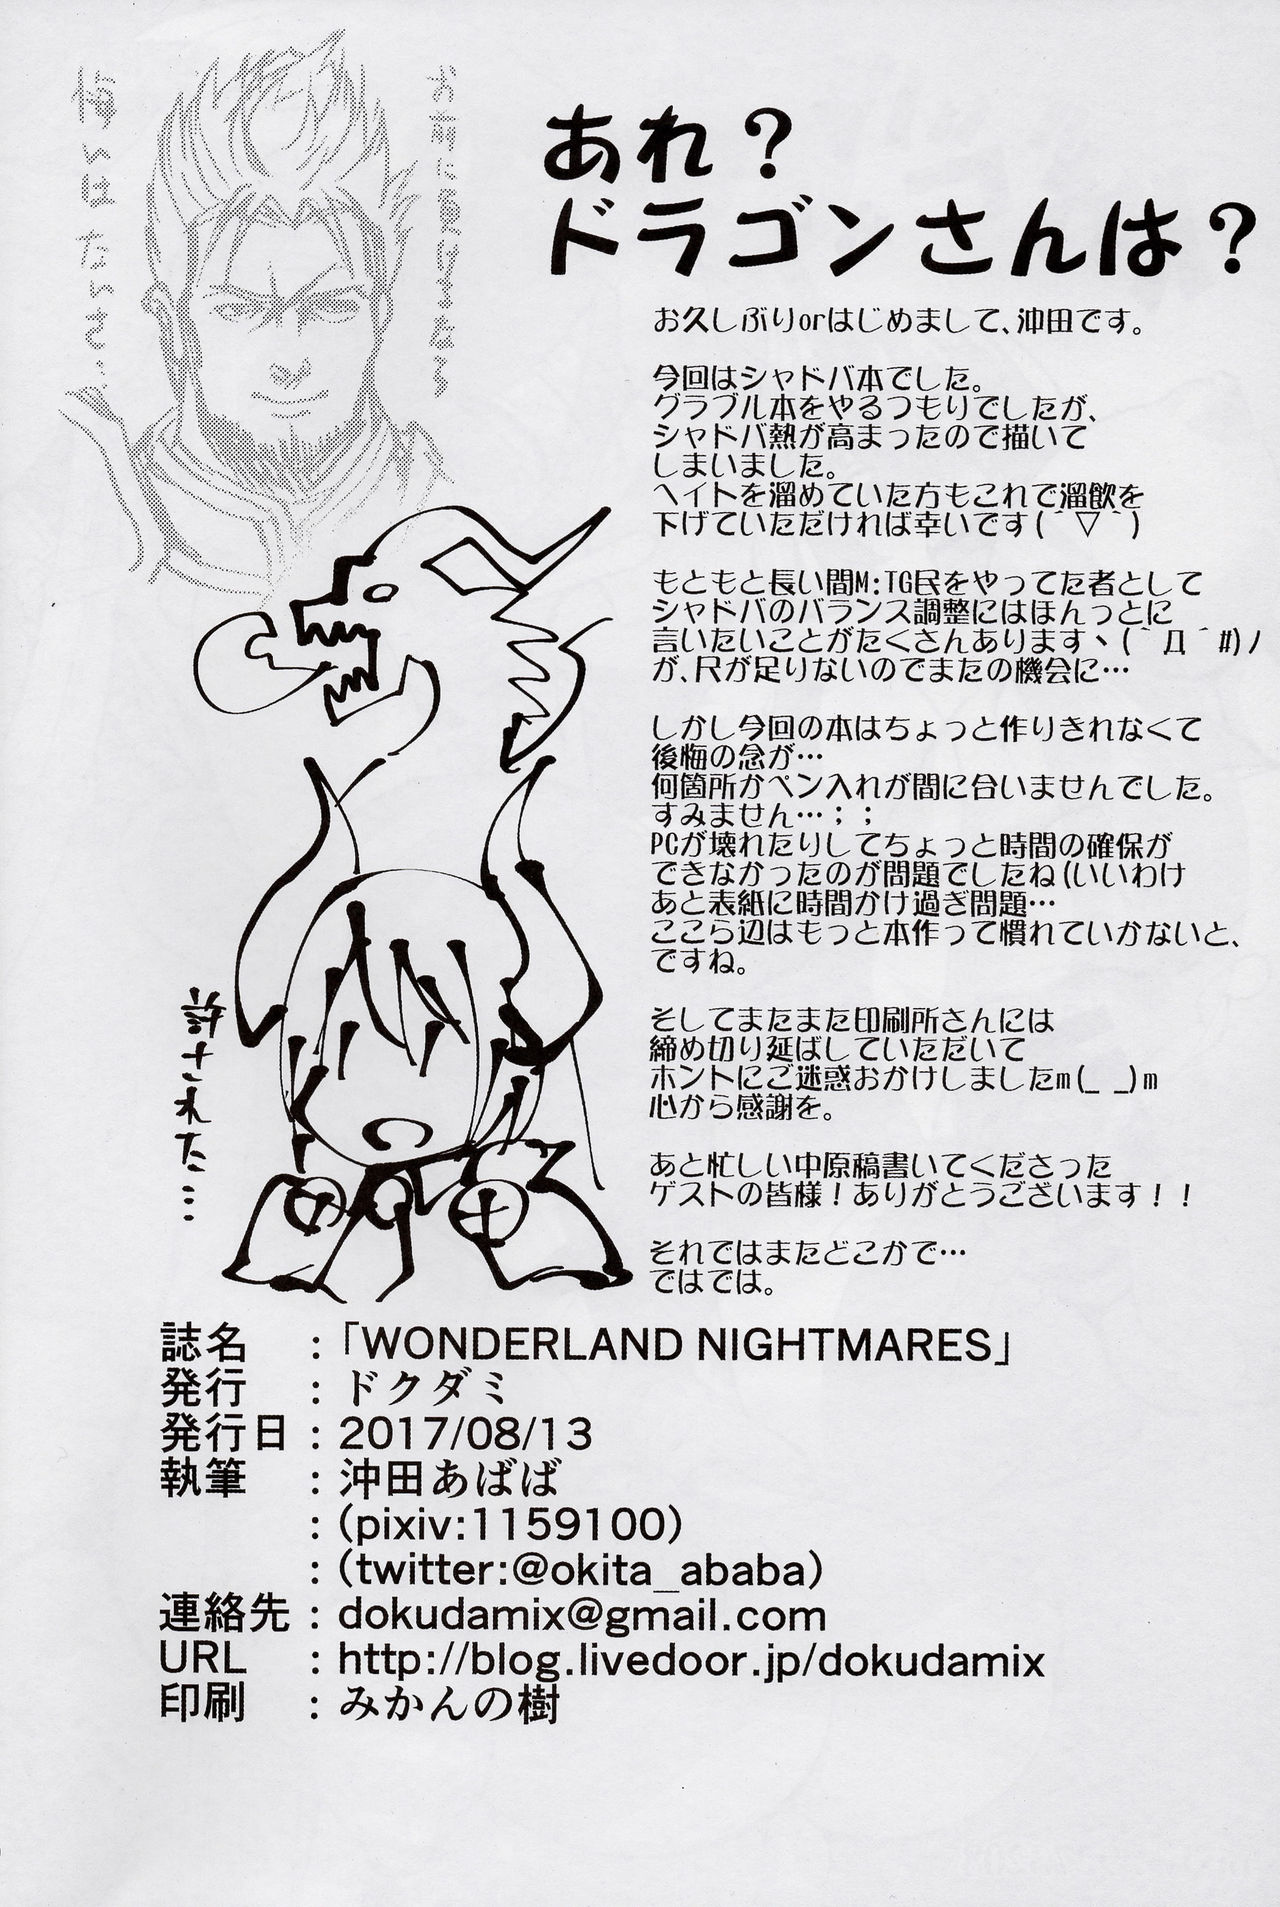 お前に負けるなら
悔いはないさ…
あれ？
ドラゴンさんは？
お久しぶりorはじめまして、沖田です。
今回はシャドバ本でした。
グラブル本をやるつもりでしたが、
シャドバ熱が高まったので描いて
しまいました。
ヘイトを溜めていた方もこれで溜飲を
下げていただければ幸いです(´▽`)
もともと長い間M:TG民をやってた者として
シャドバのバランス調整にはほんっとに
言いたいことがたくさんありますヽ(`Д´#)ﾉ
が、尺が足りないのでまたの機会に…
しかし今回の本はちょっと作りきれなくて
後悔の念が…
何箇所かペン入れが間に合いませんでした。
すみません…；；
PCが壊れたりしてちょっと時間の確保が
できなかったのが問題でしたね(いいわけ
あと表紙に時間かけ過ぎ問題…
ここら辺はもっと本作って慣れていかないと、
ですね。
そしてまたまた印刷所さんには
締め切り延ばしていただいて
ホントにご迷惑おかけしましたm(_ _)m
心から感謝を。
あと忙しい中原稿書いてくださった
ゲストの皆様！ありがとうございます！！
それではまたどこかで…
ではでは。
許された…
誌名 :「WONDERLAND NIGHTMARES」
発行 : ドクダミ
発行日 : 2017/08/13
執筆 : 沖田あばば
: (pixiv:1159100)
: (twitter:@okita_ababa)
連絡先 : dokudamix@gmail.com
URL : http://blog.livedoor.jp/dokudamix
印刷 : みかんの樹